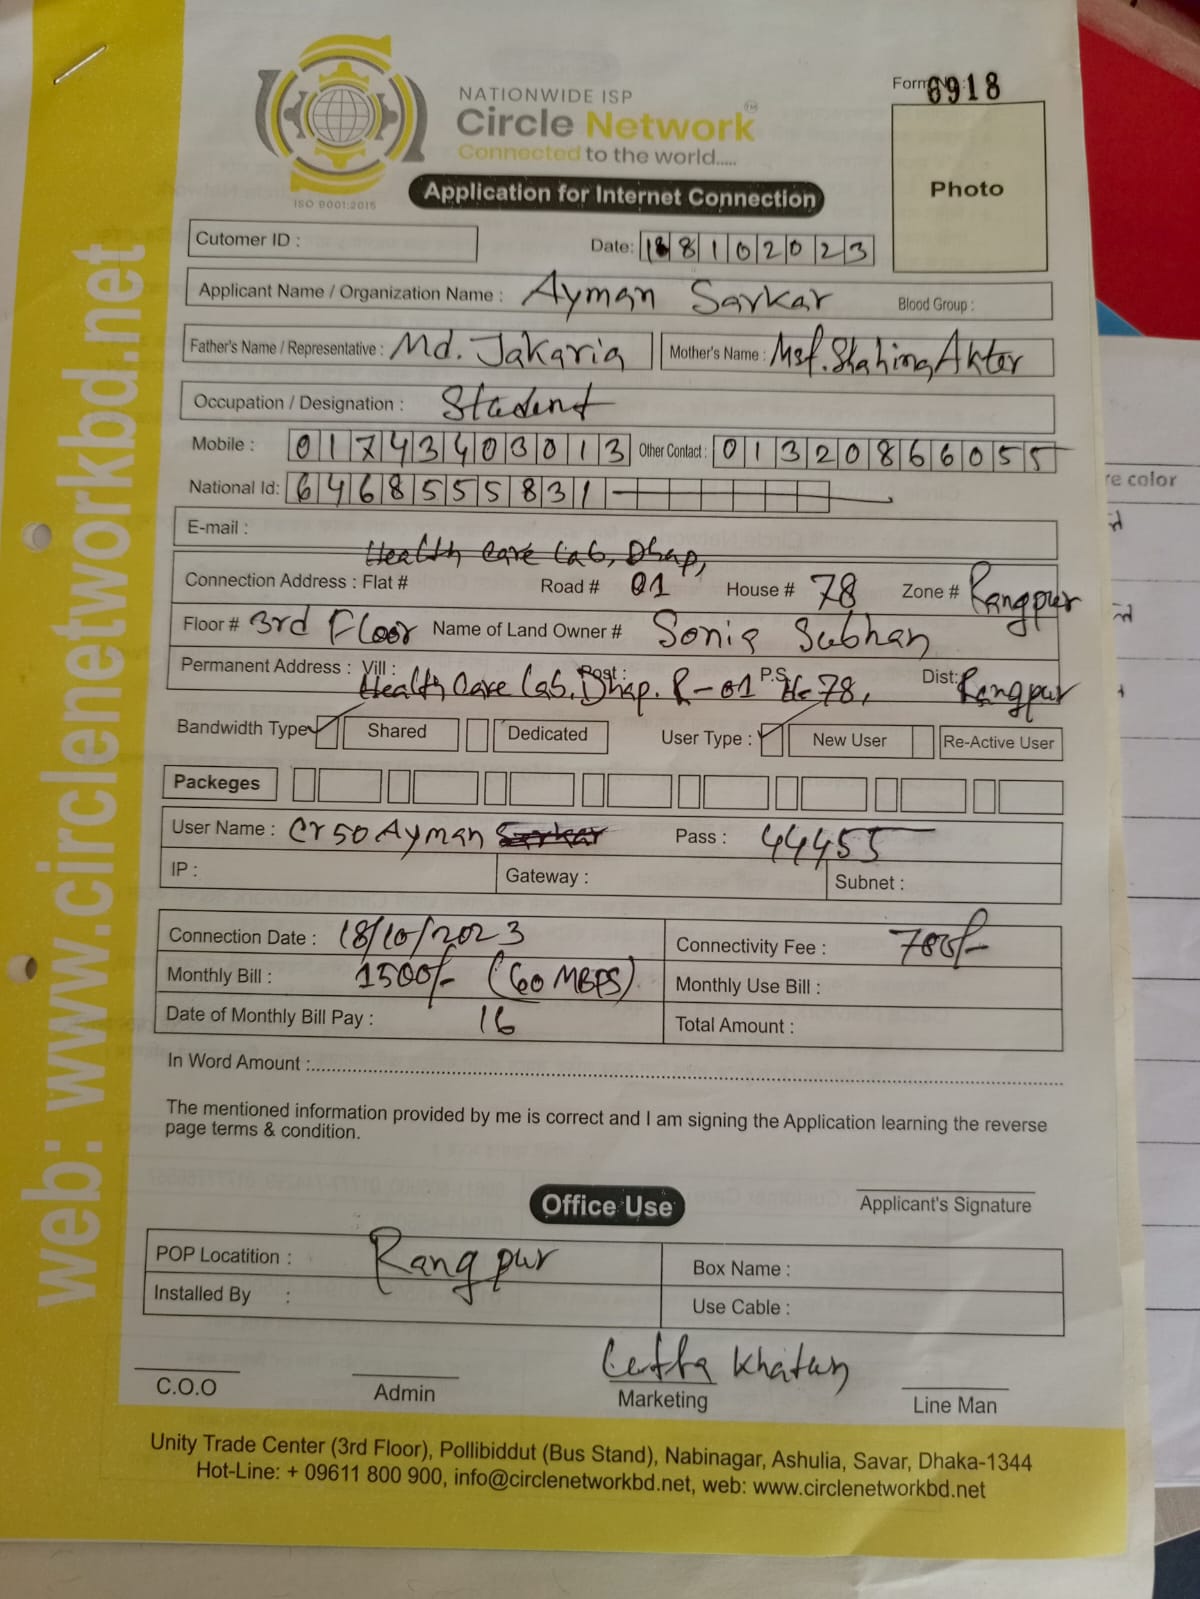 web: www.circlenetworkbd.net
ISO 9001:2015
NATIONWIDE ISP
Circle Network™
Connected to the world.....
Form No: 6918
Photo
Application for Internet Connection
Cutomer ID :
Date: 18102023
Applicant Name / Organization Name : Ayman Sarkar Blood Group :
Father's Name / Representative : Md. Jakaria Mother's Name : Akter
Occupation / Designation : Student
Mobile : 01743403013 Other Contact : 01320866055
National Id: 6468555831
E-mail :
Health Care Lab, Dhap,
Connection Address : Flat # Road # 01 House # 78 Zone # Rangpur
Floor # 3rd Floor Name of Land Owner # Sonia Subhan
Permanent Address : Vill : Health Care Lab, Post : Dhap. R-01 P.S H-78, Dist: Rangpur
Bandwidth Type Shared Dedicated User Type : New User Re-Active User
Packeges
User Name : Cr50Ayman Sarkar Pass : 44455
IP : Gateway : Subnet :
Connection Date : 18/10/2023 Connectivity Fee : 700/-
Monthly Bill : 1500/- (60 MBPS) Monthly Use Bill :
Date of Monthly Bill Pay : 16 Total Amount :
In Word Amount :
The mentioned information provided by me is correct and I am signing the Application learning the reverse
page terms & condition.
Applicant's Signature
Office Use
POP Locatition : Rangpur Box Name :
Installed By : Use Cable :
Khatun
C.O.O Admin Marketing Line Man
Unity Trade Center (3rd Floor), Pollibiddut (Bus Stand), Nabinagar, Ashulia, Savar, Dhaka-1344
Hot-Line: + 09611 800 900, info@circlenetworkbd.net, web: www.circlenetworkbd.net
re color